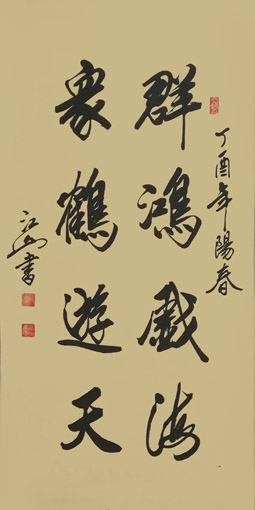 丁酉年陽春
群鴻戲海
衆鶴遊天
江山書